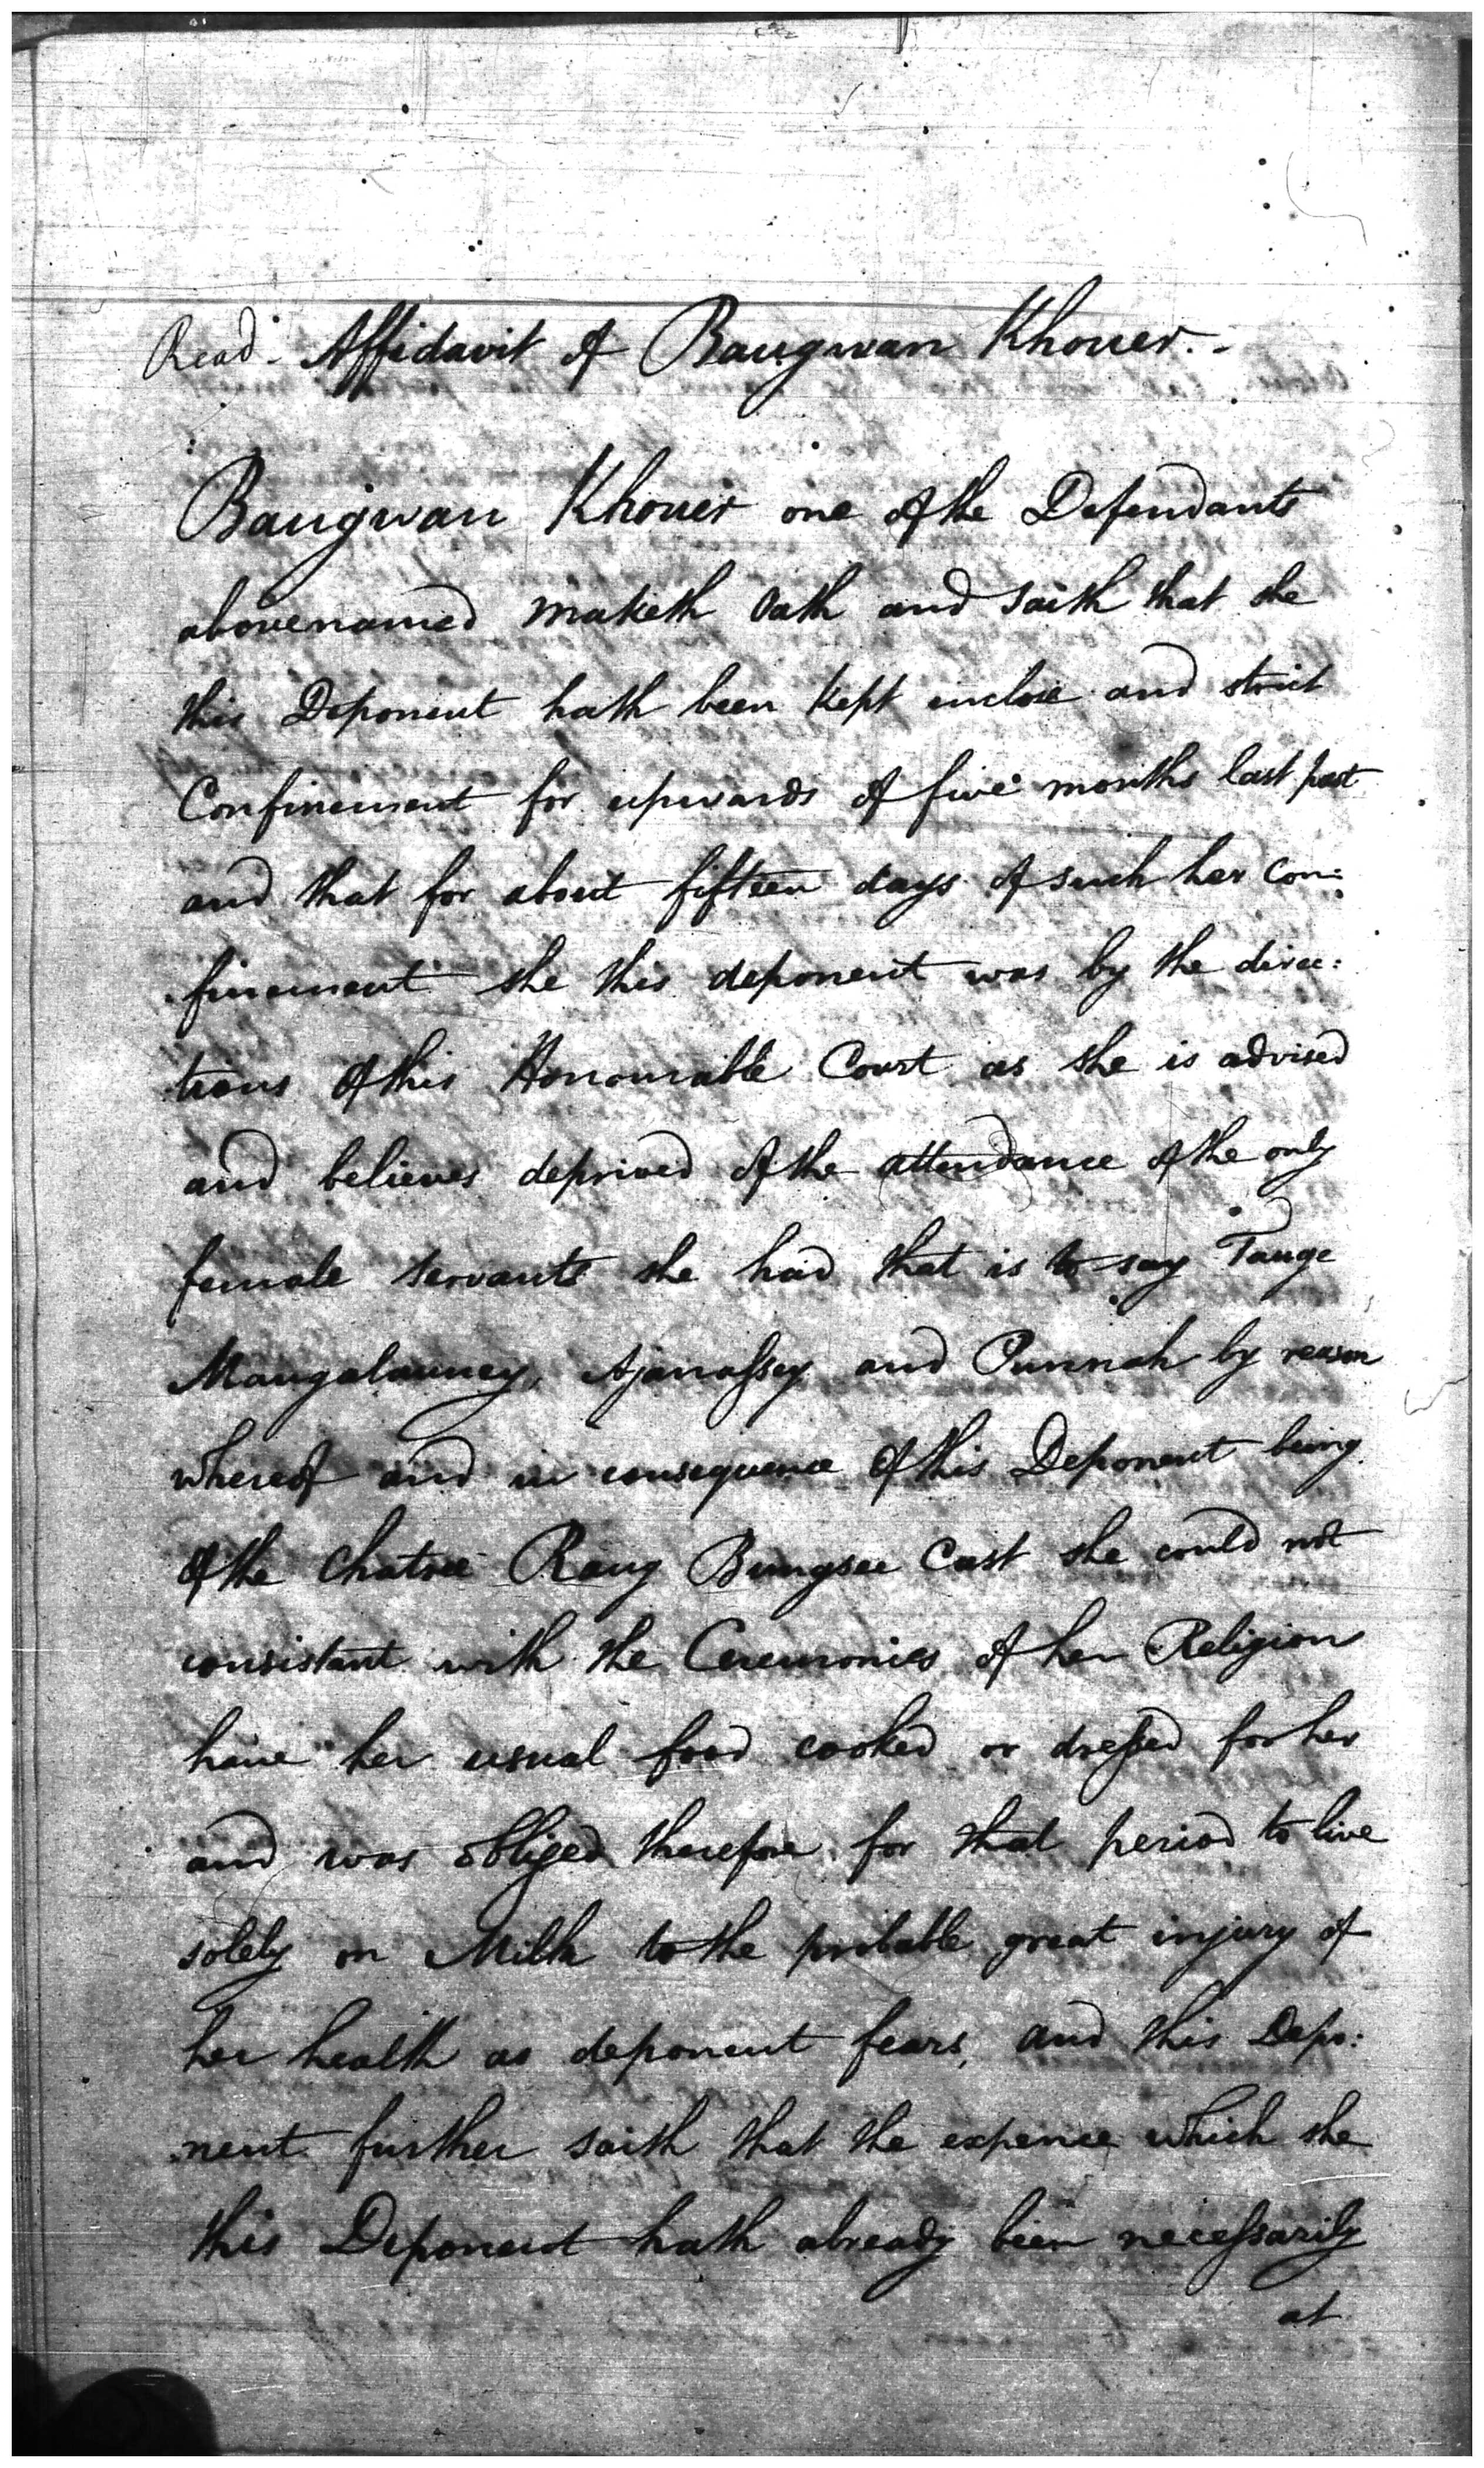 Read. Affidavit of Baugwan Khouer.
Baugwan Khouer one of the Defendants
abovenamed maketh Oath and saith that she
this Deponent hath been kept inclose and strict
Confinement for upwards of five months last past
and that for about fifteen days of such her Con:
:finement she this deponent was by the direc:
:tions of this Honourable Court as she is advised
and believes deprived of the attendance of the only
female servants she had that is to say Tauge
Mangalauney, Ajanaſsey and Punnah by reason
whereof and in consequence of this Deponent being
of the Chatree Raug Bungsee Cast she could not
consistant with the Ceremonies of her Religion
have her usual food cooked or dreſsed for her
and was obliged therefore for that period to live
solely on Milk to the probable great injury of
her health as deponent fears, and this Depo:
:nent further saith that the expence which she
this Deponent hath already been neceſsarily
at